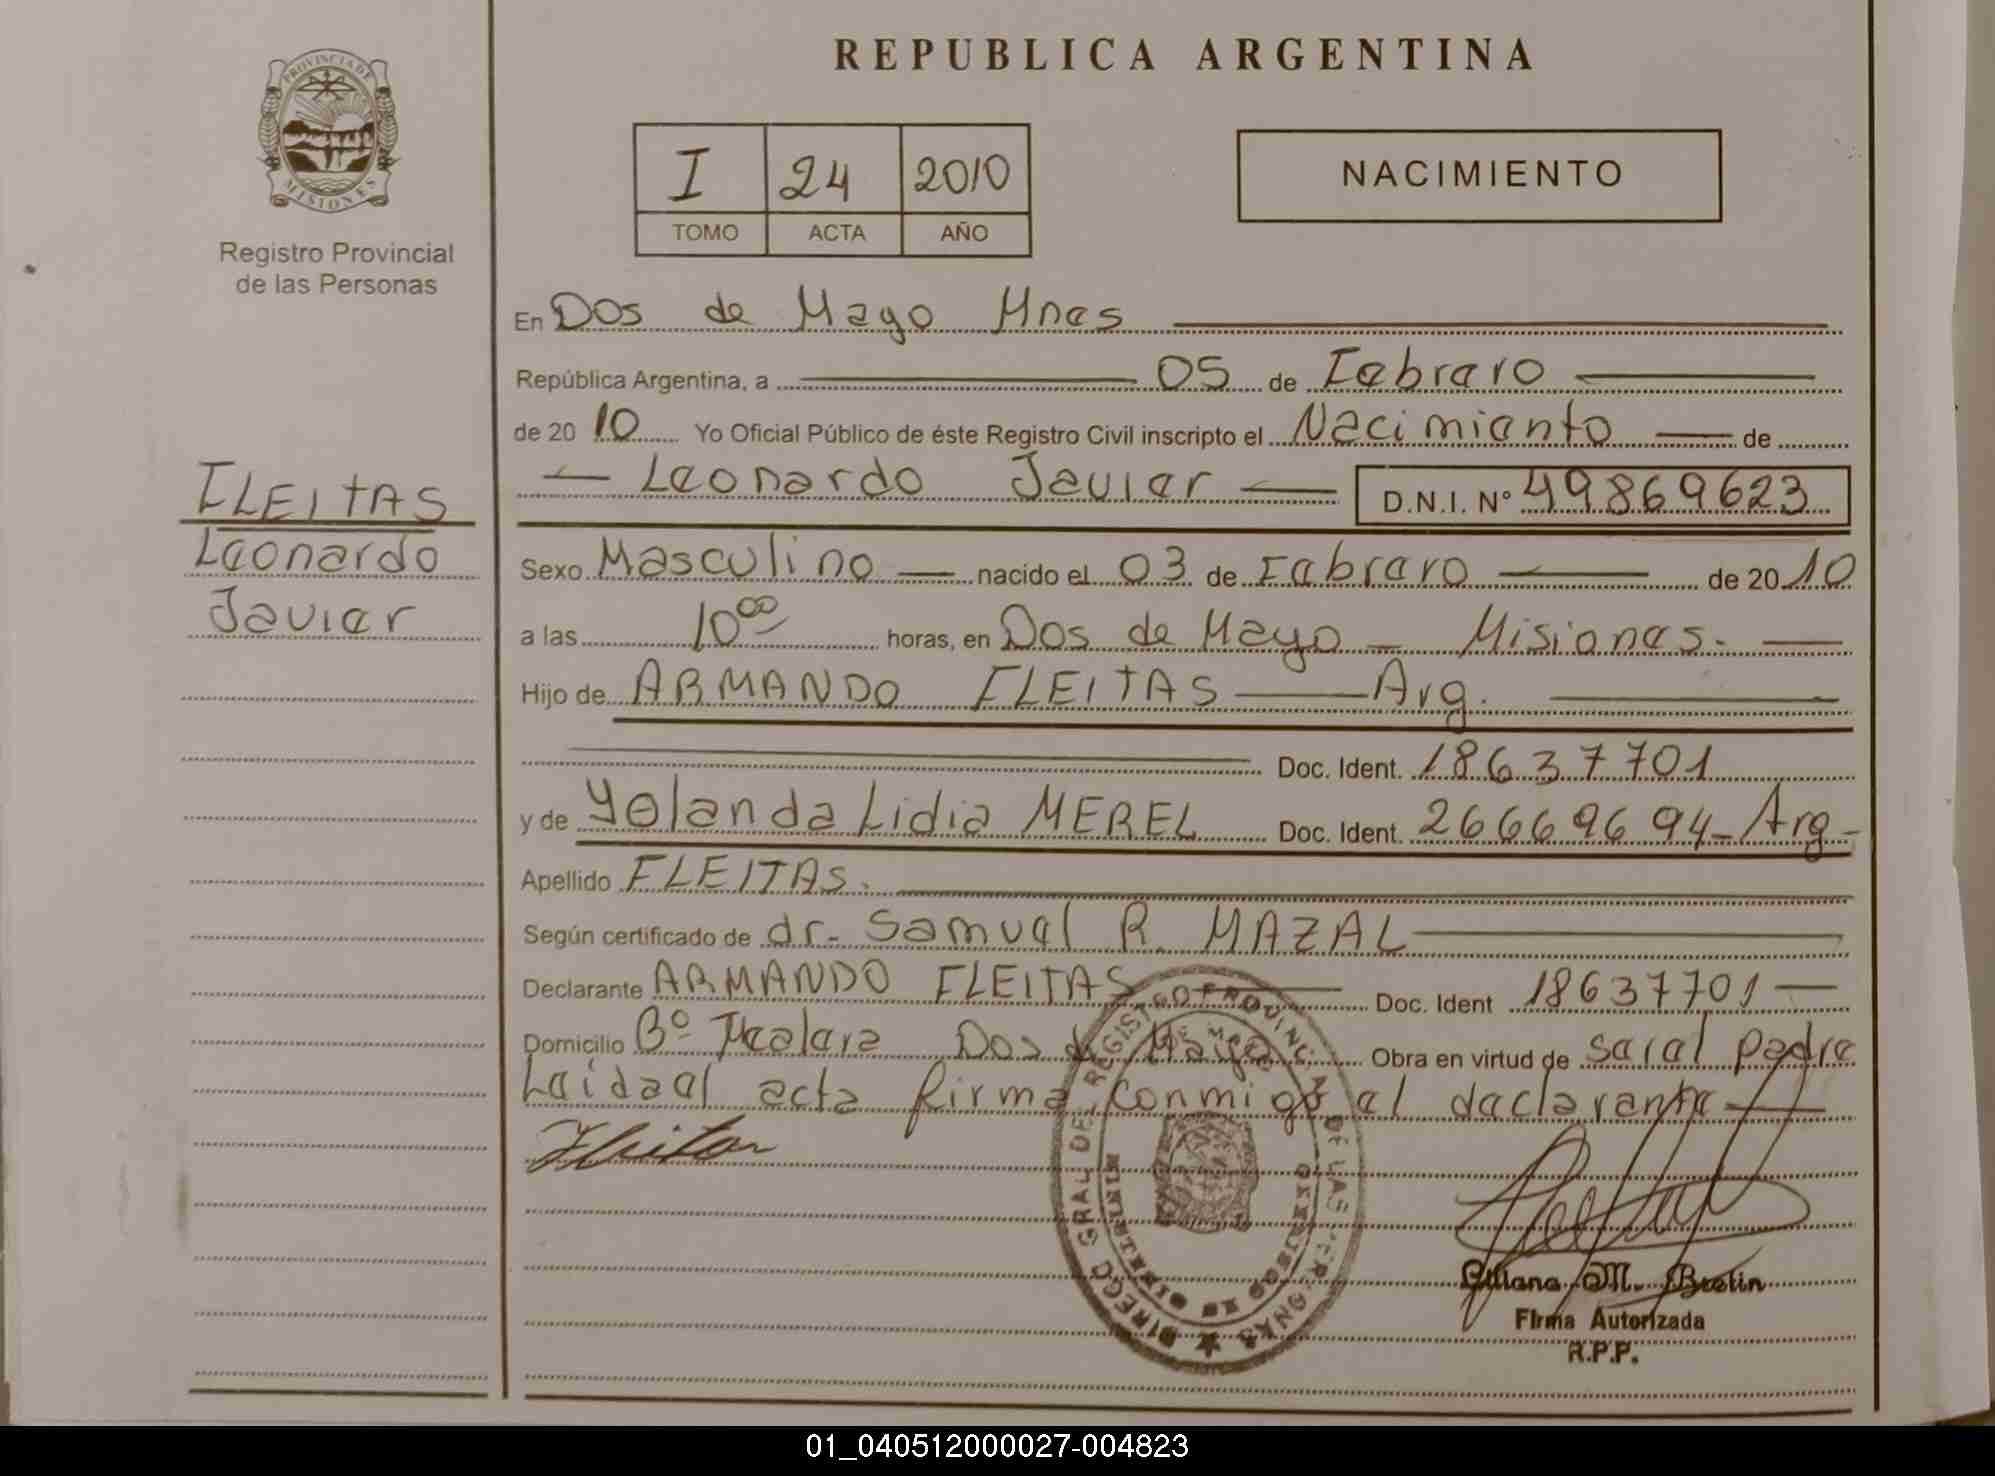 PROVINCIA DE
MISIONES
Registro Provincial
de las Personas
FLEITAS
Leonardo
Javier
REPUBLICA ARGENTINA
I 24 2010
TOMO ACTA AÑO
NACIMIENTO
En Dos de Mayo Mnes
República Argentina, a 05 de Febrero
de 20 10 Yo Oficial Público de éste Registro Civil inscripto el Nacimiento de
Leonardo Javier D.N.I. Nº 49869623
Sexo Masculino nacido el 03 de Febrero de 20 10
a las 10 00 horas, en Dos de Mayo - Misiones.
Hijo de ARMANDO FLEITAS Arg.
Doc. Ident. 18637701
y de Yolanda Lidia MEREL Doc. Ident. 26669694 - Arg -
Apellido FLEITAS.
Según certificado de dr. Samuel R. MAZAL
Declarante ARMANDO FLEITAS Doc. Ident 18637701
Domicilio Bº Dos de Mayo Obra en virtud de ser el padre
Leida el acta firma conmigo el declarante
Fleitas
DIRECC GRAL DEL REGISTRO PROVINC. DE LAS PERSONAS
Liliana M. Brstin
Firma Autorizada
R.P.P.
01_040512000027-004823